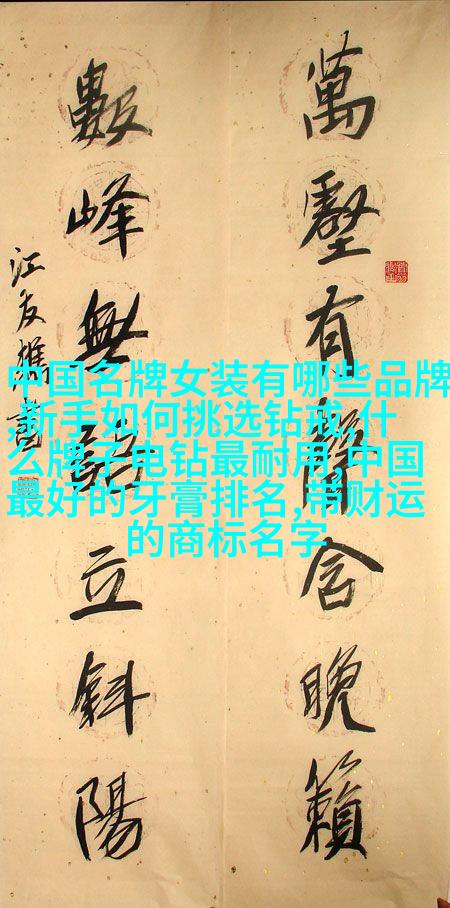 萬壑有聲含晚籟
數峰無語立斜陽
江友樵書
中国名牌女装有哪些品牌
,新手如何挑选钻戒,什
么牌子电钻最耐用,中国
最好的牙膏排名,带财运
的商标名字